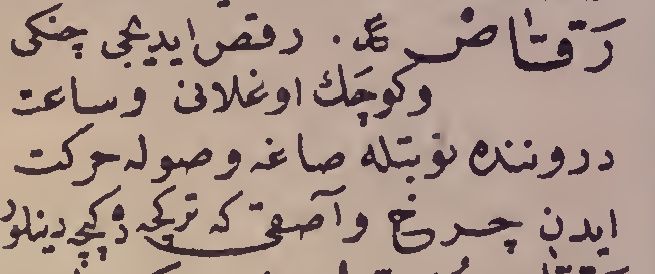 رَقَّاصْ عر . رقص ایدیجی چنکی
وکوچك اوغلانی وساعت
دروننده نوبتله صاغه وصوله حرکت
ایدن چرخ وآصقی که ترکجه دینلور